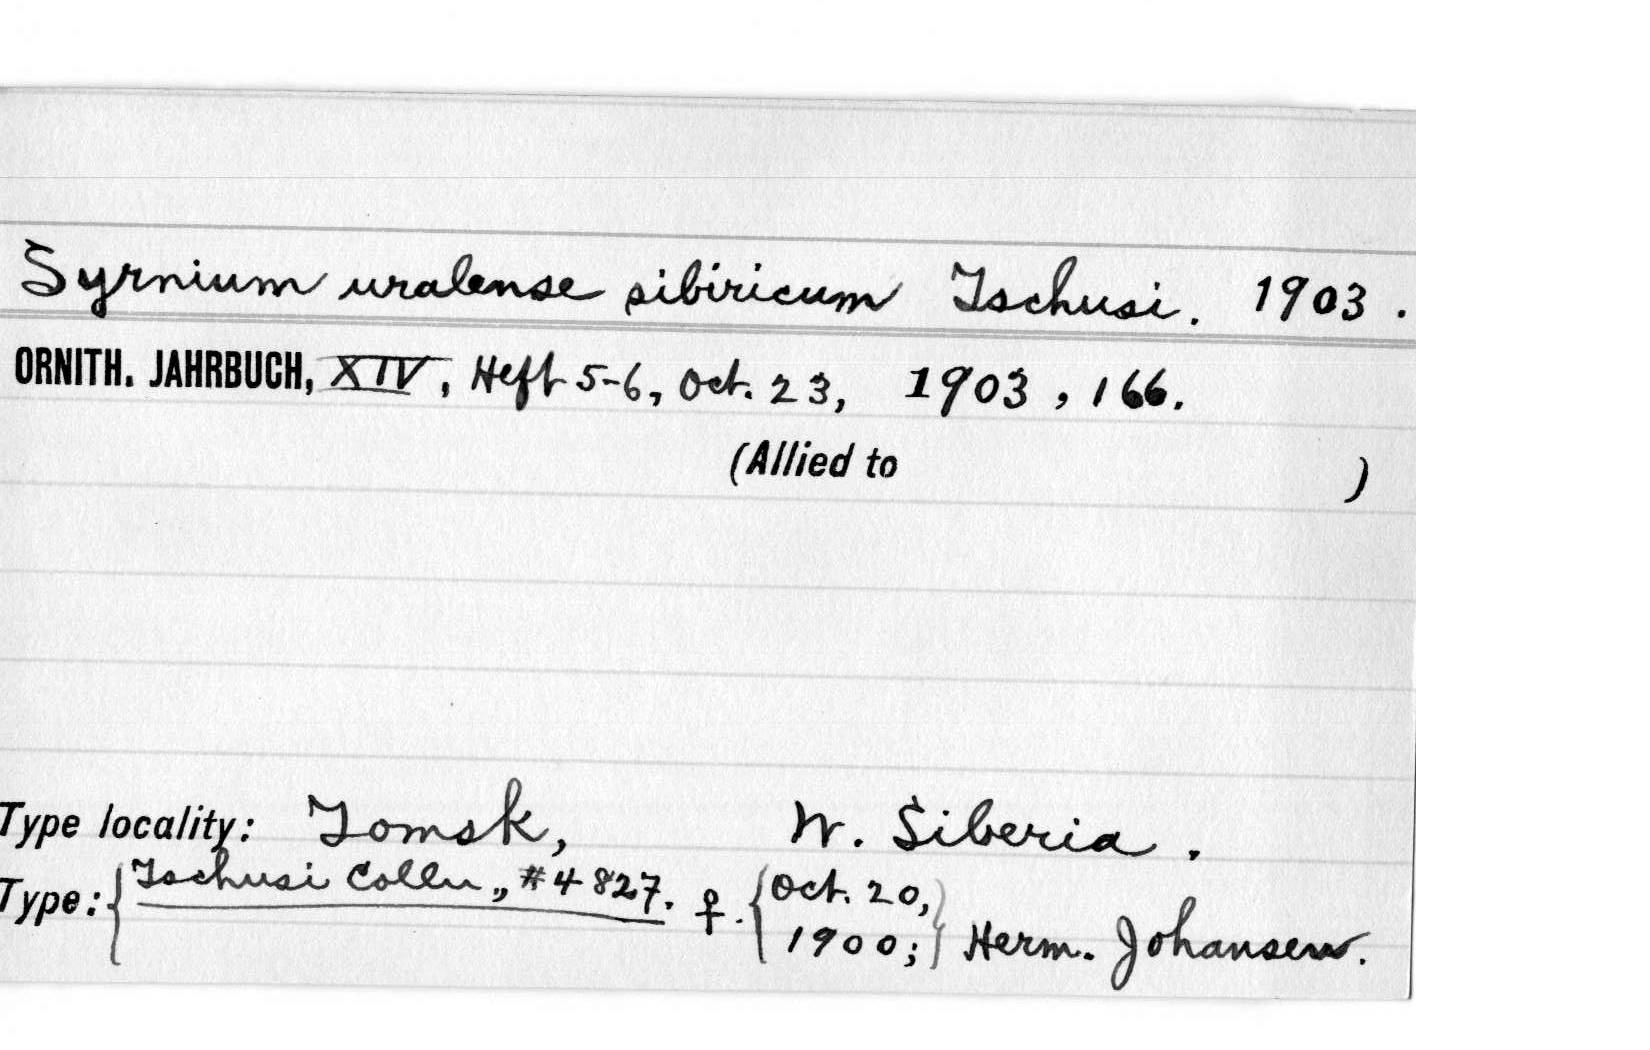 Syrnium uralense sibiricum Tschusi. 1903.
ORNITH. JAHRBUCH, XIV, Heft 5-6, Oct. 23, 1903, 166.
(Allied to )
Type locality: Tomsk, W. Siberia.
Type: { Tschusi Colln., #4827. ♀. { Oct. 20, 1900; } Herm. Johansen.